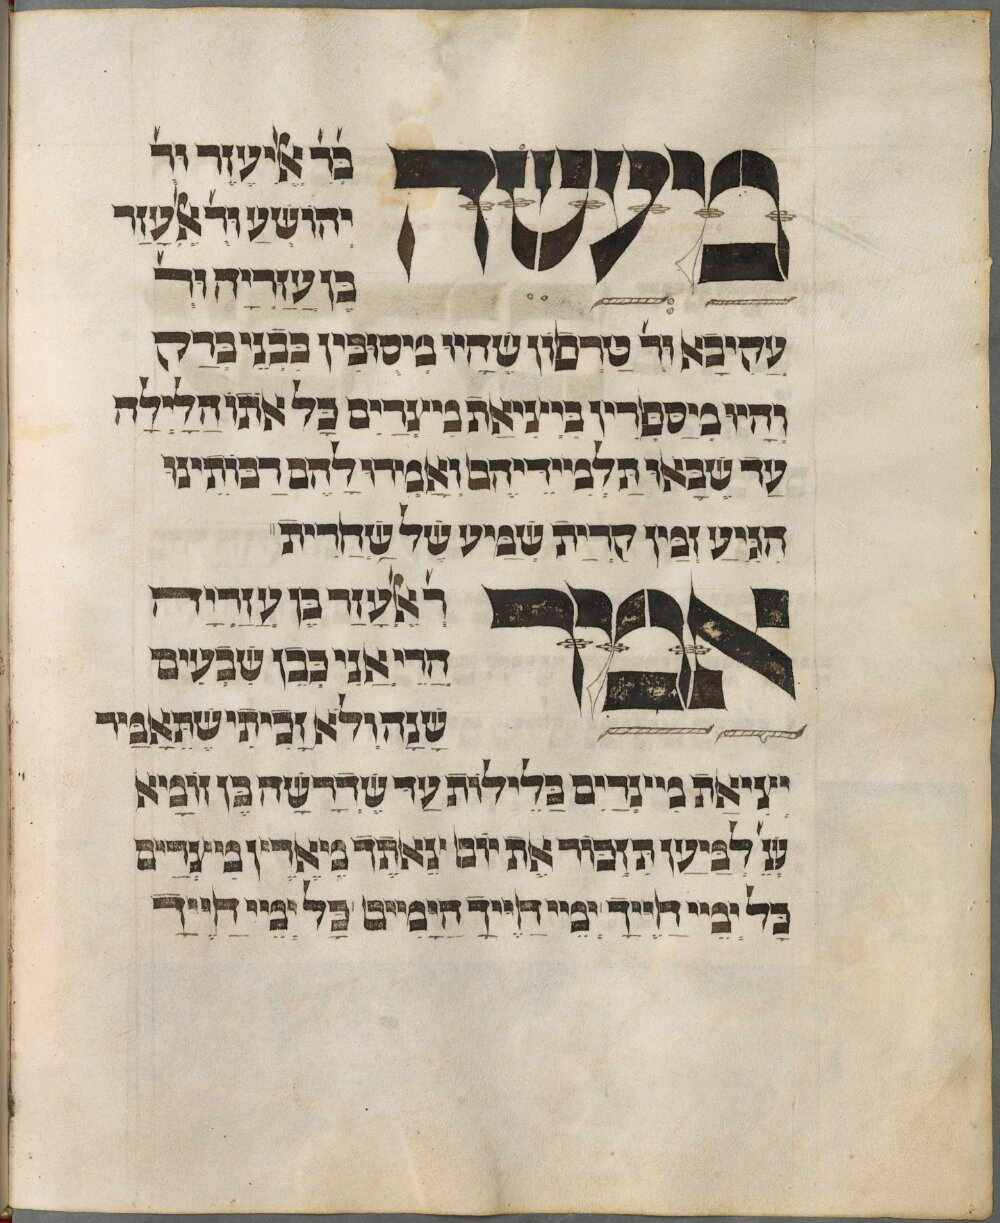 מעשה
בר׳ אליעזר ור׳
יהושע ור׳ אלעזר
בן עזריה ור׳
עקיבא ור׳ טרפון שהיו מיסובין בבני ברק
והיו מיספרין ביציאת מיצרים כל אתו הלילה
עד שבאו תלמידיהם ואמרו להם רבותינו
הגיע זמן קרית שמיע של שחרית
אמר
ר׳ אלעזר בן עזריה
הרי אני כבן שבעים
שנה ולא זכיתי שתאמיר
יציאת מיצרים בלילות עד שדרשה בן זומא
שנ׳ למען תזכור את יום צאתך מארץ מיצרים
כל ימי חייך ימי חייך הימים כל ימי חייך